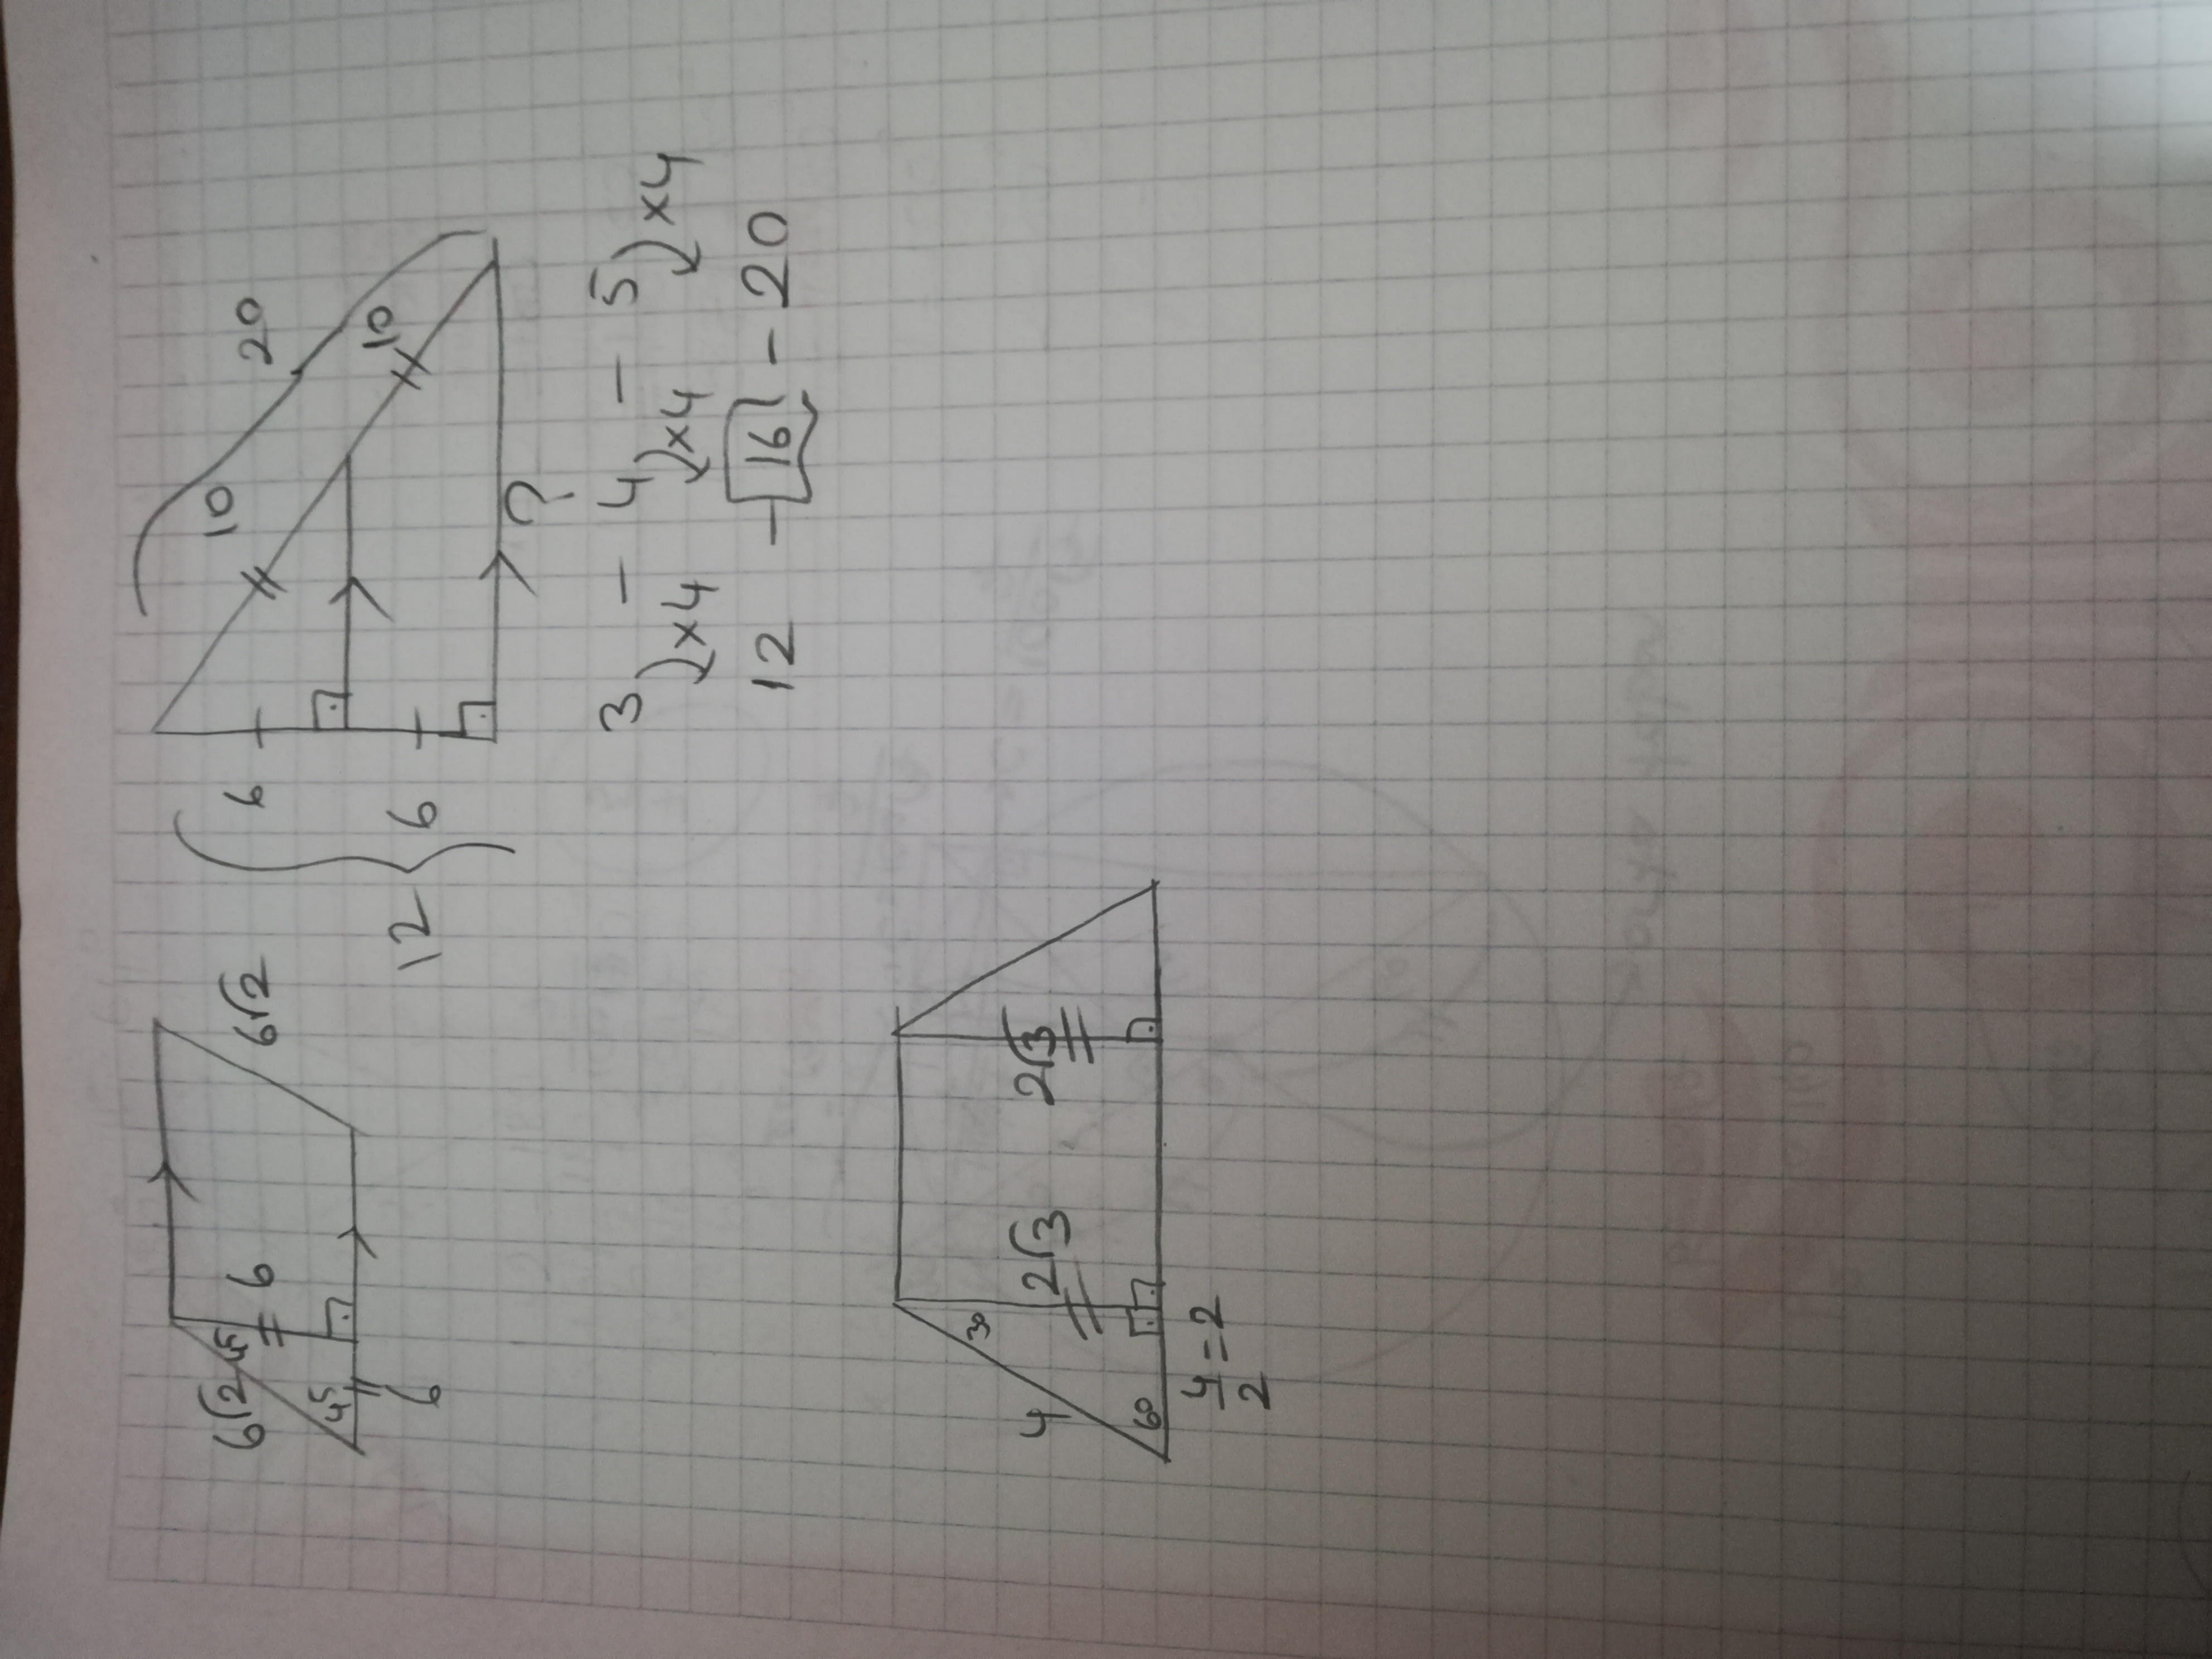 6√2 45 6 6√2
45
6
6 10 20
12 6 10
?
3 - 4 - 5
x4 x4 x4
12 - 16 - 20
4 30 2√3 2√3
60
4/2 = 2